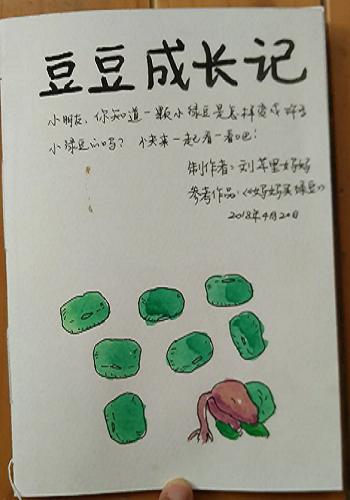 豆豆成长记
小朋友,你知道一颗小绿豆是怎样变成许多
小绿豆的吗?快来一起看一看吧!
制作者:刘芊里妈妈
参考作品:《妈妈买绿豆》
2018年4月20日